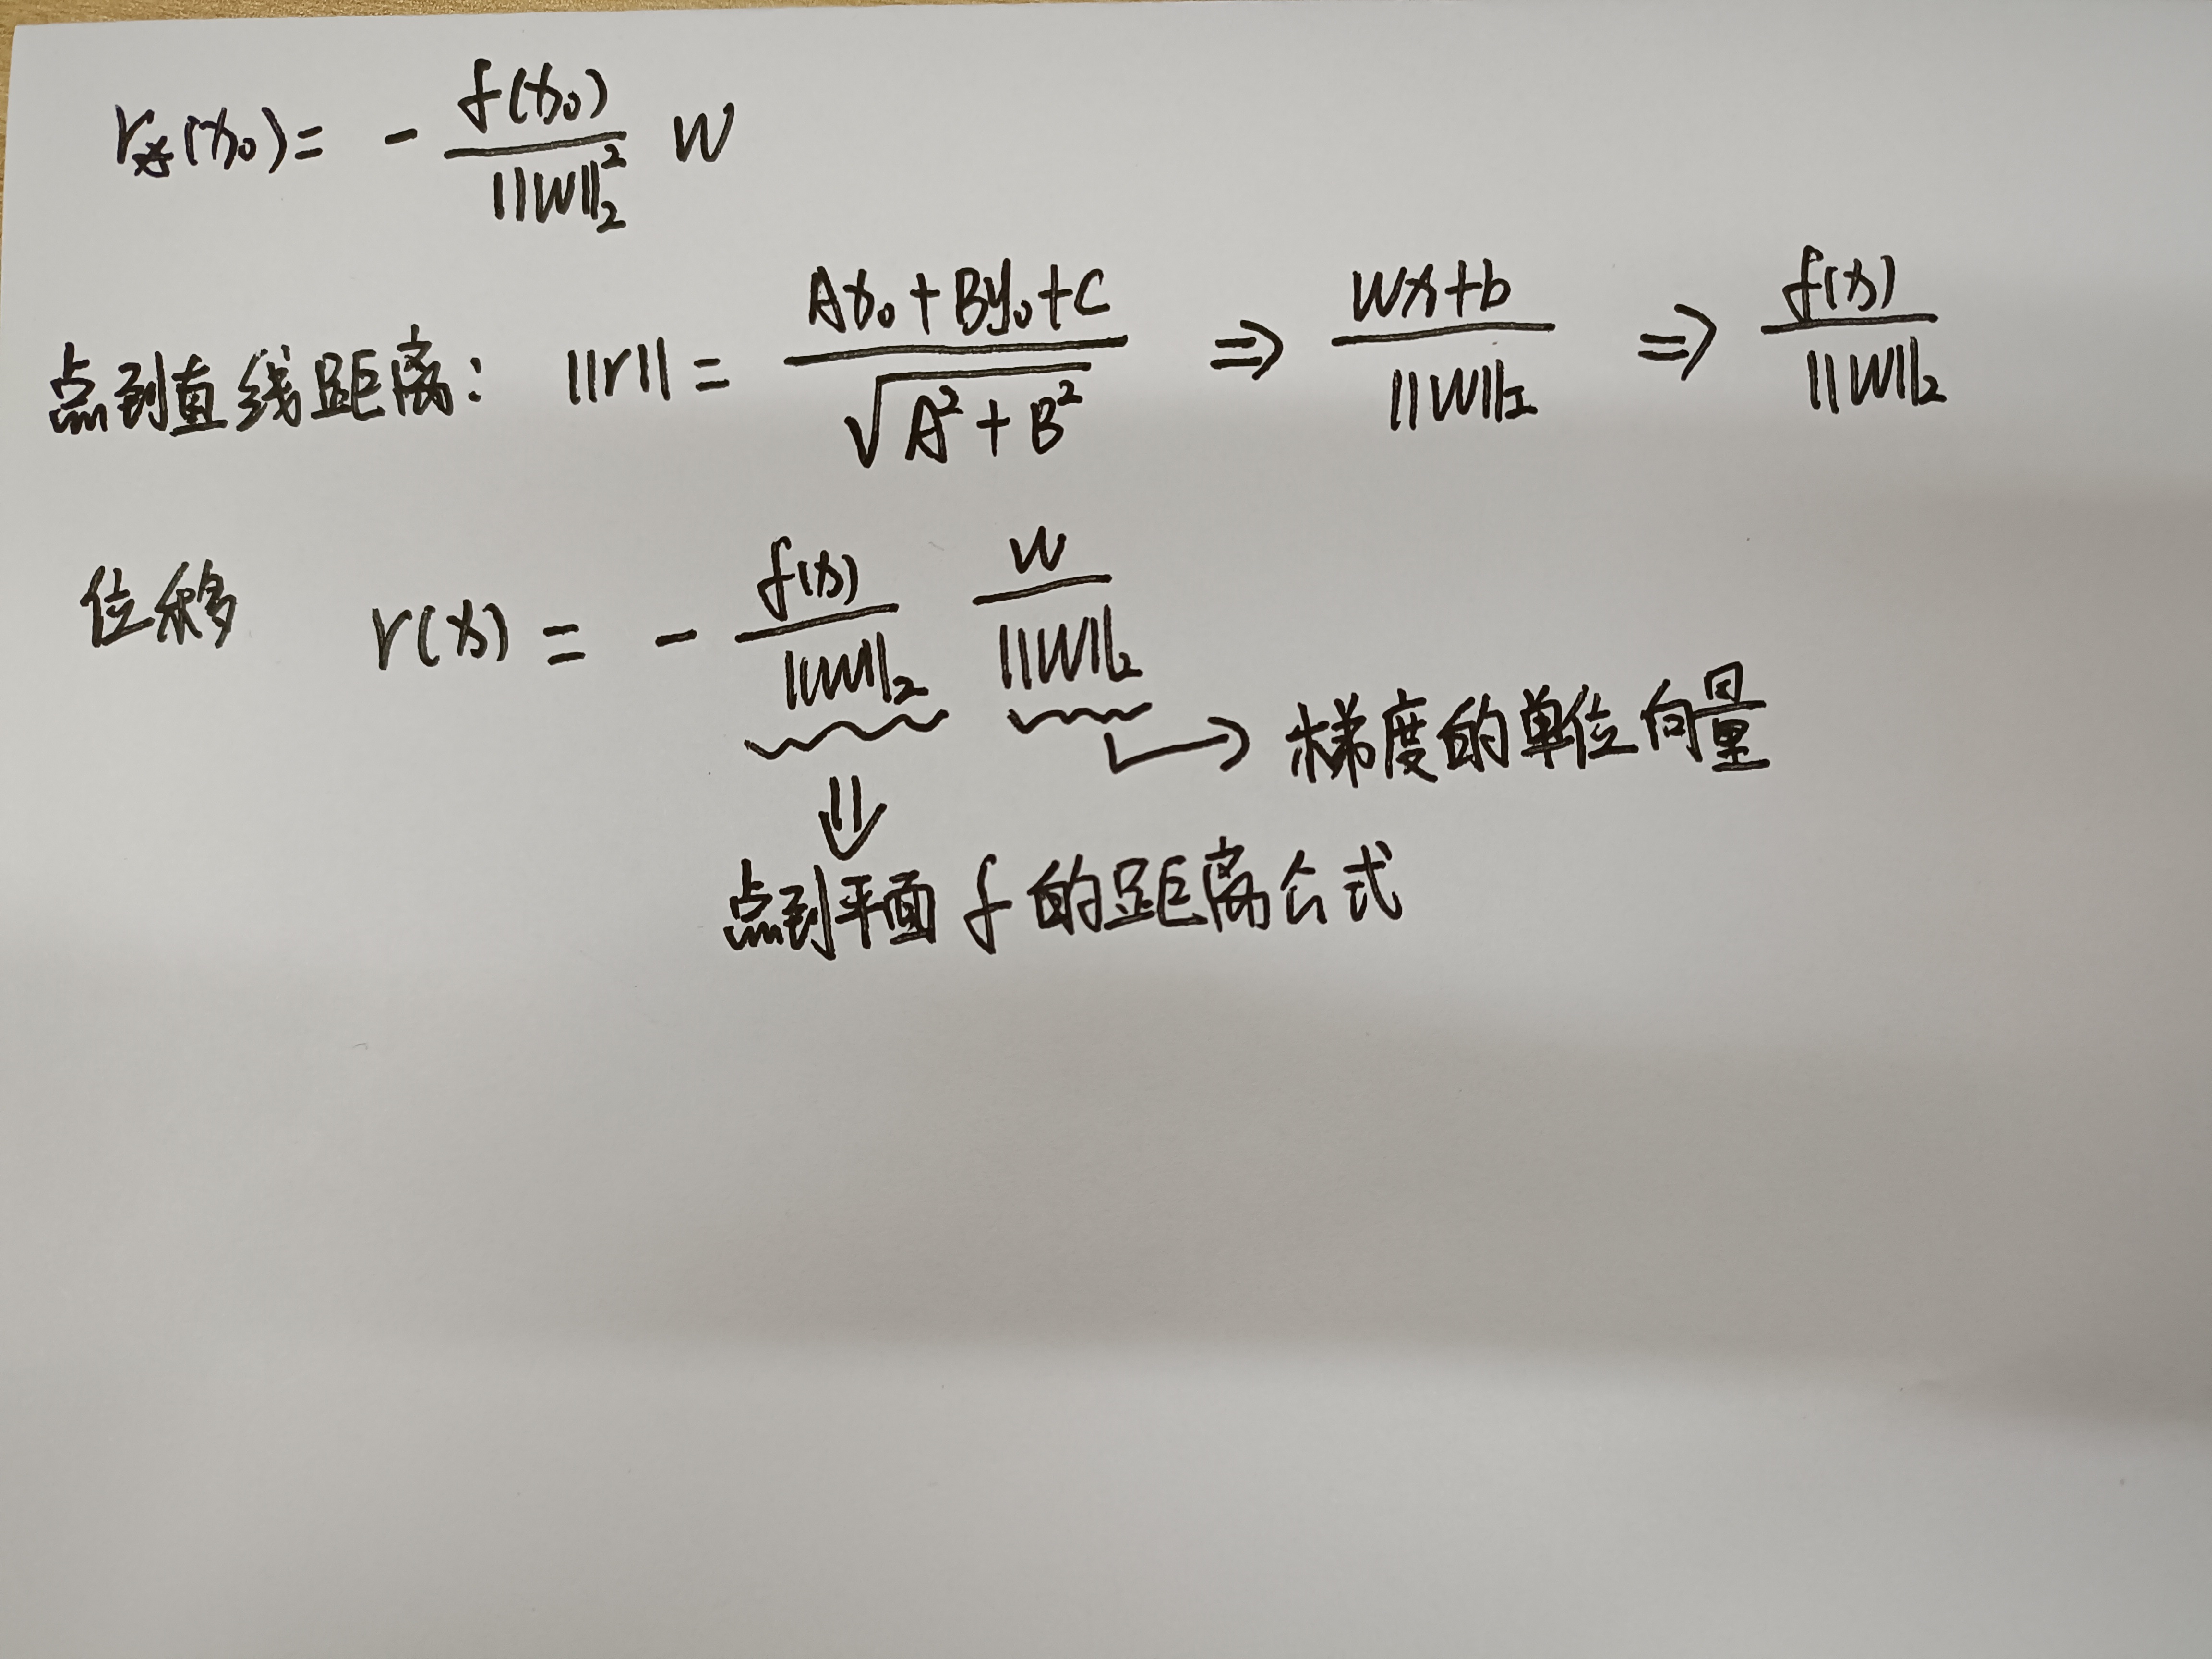 r_*(x₀) = - f(x₀)/||W||₂² W
点到直线距离: ||r|| = (Ax₀+By₀+C)/√(A²+B²) ⇒ (Wx+b)/||W||₂ ⇒ f(x)/||W||₂
位移 r(x) = - f(x)/||W||₂ W/||W||₂
→ 梯度的单位向量
⇓
点到平面 f 的距离公式